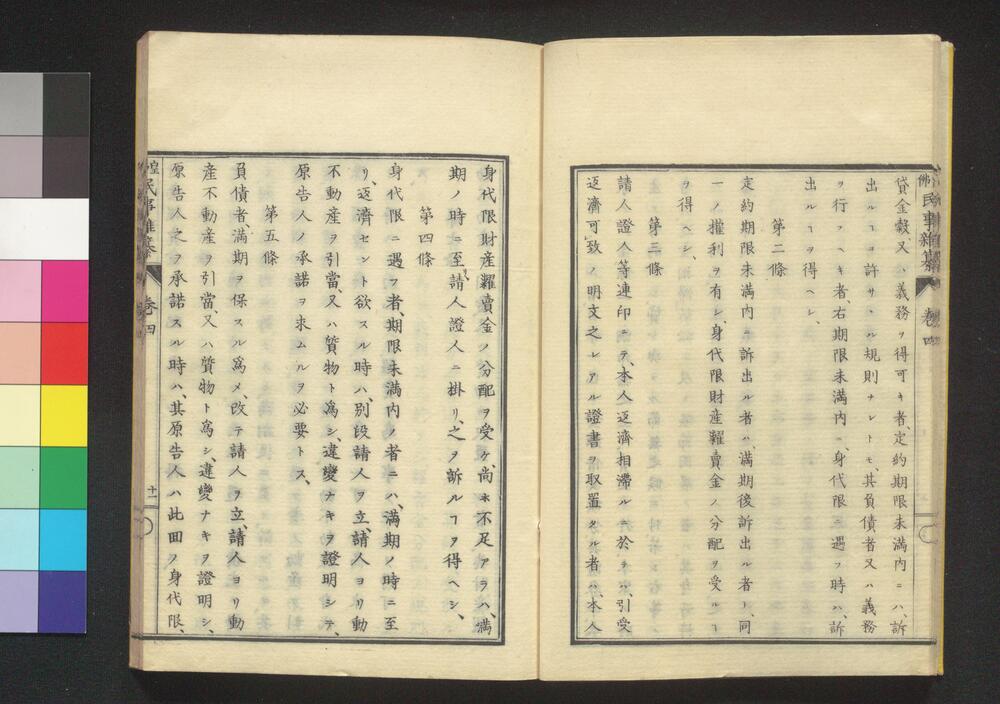 貸金穀又ハ義務ヲ得可キ者、定約期限未満内ニハ、訴
出ルヿヲ許サヽル規則ナレトモ、其負債者又ハ義務
ヲ行フヘキ者、右期限未満内ニ、身代限ニ遇フ時ハ、訴
出ルヿヲ得ヘシ、
第二條
定約期限未満内ニ訴出ル者ハ、満期後訴出ル者ト、同
一ノ權利ヲ有シ、身代限財産糶賣金ノ分配ヲ受ルヿ
ヲ得ヘシ、
第三條
請人證人等連印ニテ、本人返濟相滯ルニ於テハ、引受
返濟可致ノ明文之レアル證書ヲ取置タル者ハ、本人
身代限財産糶賣金ノ分配ヲ受ケ、尚ホ不足アラハ、満
期ノ時ニ至リ、請人證人ニ掛リ、之ヲ訴ルヿヲ得ヘシ、
第四條
身代限ニ遇フ者、期限未満内ノ者ニハ、満期ノ時ニ至
リ、返濟セント欲スル時ハ、別段請人ヲ立、請人ヨリ動
不動産ヲ引當、又ハ質物ト爲シ、違變ナキヲ證明シテ、
原告人ノ承諾ヲ求ムルヲ必要トス、
第五條
負債者満期ヲ保スル爲メ、改テ請人ヲ立、請人ヨリ動
産不動産ヲ引當、又ハ質物ト爲シ、違變ナキヲ證明シ、
原告人之ヲ承諾スル時ハ、其原告人ハ此囬ノ身代限、
民事雜纂
卷四
十二
佛民事雜纂
卷四